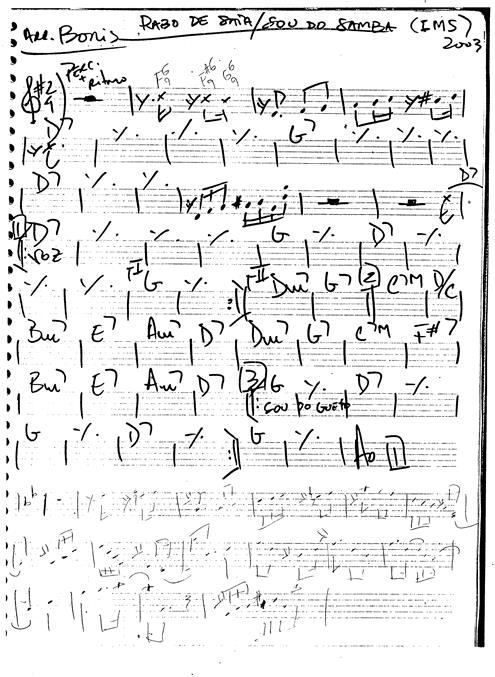 Arr. Boris RABO DE SAIA/SOU DO SAMBA (IMS) 2003
PERC. + Ritmo F6 9 F#6 9 G6 9
2 4
D7 ٪ ٪ G7 ٪ ٪ ٪
D7 ٪ ٪ D7
II D7 ٪ ٪ ٪ G ٪ D7 ٪
voz
٪ ٪ I G ٪ II Dm7 G7 2 C7M D/C
Bm7 E7 Am7 D7 Dm7 G7 C7M F#7
Bm7 E7 Am7 D7 3 G ٪ D7 ٪
SOU DO GUETO
G ٪ D7 ٪ G ٪ Ao II